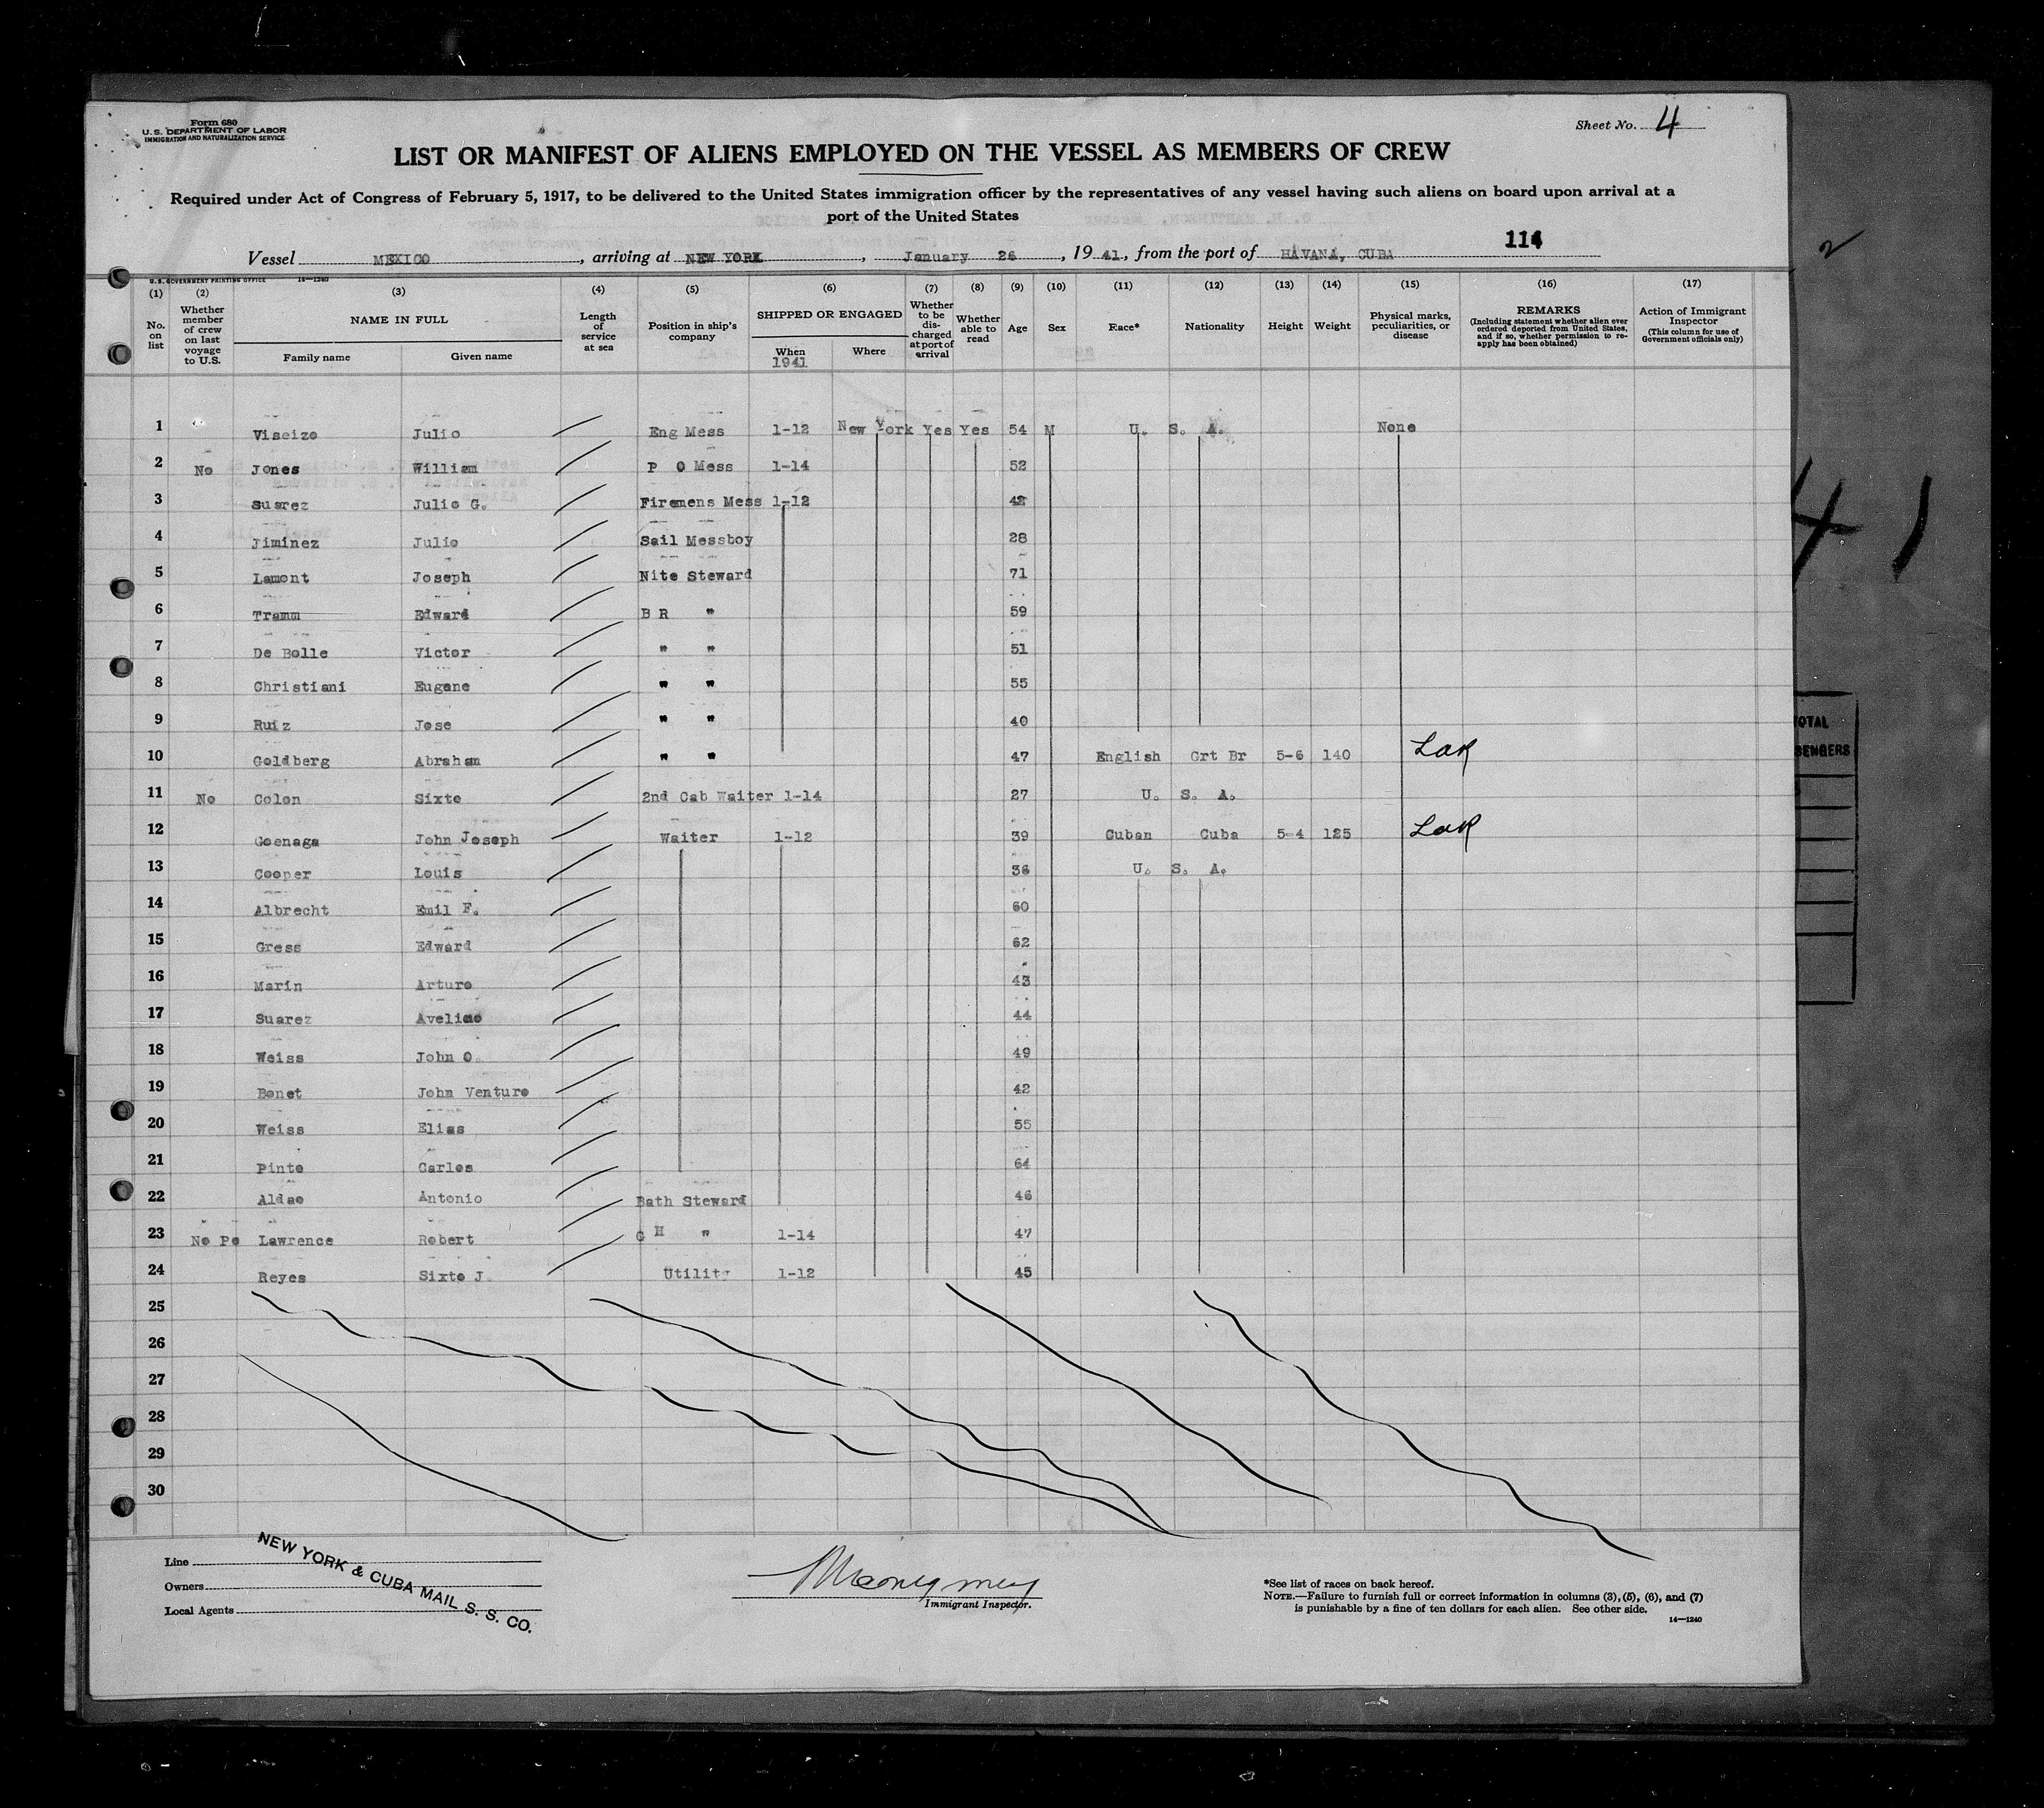 Form 680
U. S. DEPARTMENT OF LABOR
IMMIGRATION AND NATURALIZATION SERVICE
Sheet No. 4
LIST OR MANIFEST OF ALIENS EMPLOYED ON THE VESSEL AS MEMBERS OF CREW
Required under Act of Congress of February 5, 1917, to be delivered to the United States immigration officer by the representatives of any vessel having such aliens on board upon arrival at a
port of the United States
114
Vessel MEXICO, arriving at NEW YORK, January 26, 1941, from the port of HAVANA, CUBA
2
U. S. GOVERNMENT PRINTING OFFICE 14—1240
(1) (2) (3) (4) (5) (6) (7) (8) (9) (10) (11) (12) (13) (14) (15) (16) (17)
No. on list
Whether member of crew on last voyage to U.S.
NAME IN FULL
Family name Given name
Length of service at sea
Position in ship's company
SHIPPED OR ENGAGED
When 1941 Where
Whether to be discharged at port of arrival
Whether able to read
Age
Sex
Race*
Nationality
Height
Weight
Physical marks, peculiarities, or disease
REMARKS
(Including statement whether alien ever ordered deported from United States, and if so, whether permission to reapply has been obtained)
Action of Immigrant Inspector
(This column for use of Government officials only)
1 Viseizo Julio Eng Mess 1-12 New York Yes Yes 54 M U. S. A. None
2 No Jones William P O Mess 1-14 52
3 Suarez Julio G. Firemens Mess 1-12 42
4 Jiminez Julio Sail Messboy 28
5 Lamont Joseph Nite Steward 71
6 Tramm Edward B R " 59
7 De Bolle Victor " " 51
8 Christiani Eugene " " 55
9 Ruiz Jose " " 40
10 Goldberg Abraham " " 47 English Grt Br 5-6 140 LaR
11 No Colon Sixto 2nd Cab Waiter 1-14 27 U. S. A.
12 Goenaga John Joseph Waiter 1-12 39 Cuban Cuba 5-4 125 LaR
13 Cooper Louis 36 U. S. A.
14 Albrecht Emil F. 60
15 Gress Edward 62
16 Marin Arturo 43
17 Suarez Avelino 44
18 Weiss John O. 49
19 Bonet John Venturo 42
20 Weiss Elias 55
21 Pinto Carlos 64
22 Aldao Antonio Bath Steward 46
23 No Po Lawrence Robert G H " 1-14 47
24 Reyes Sixto J. Utility 1-12 45
25
26
27
28
29
30
41
TOTAL
Line
Owners
Local Agents
NEW YORK & CUBA MAIL S. S. CO.
Immigrant Inspector.
*See list of races on back hereof.
NOTE.—Failure to furnish full or correct information in columns (3), (5), (6), and (7)
is punishable by a fine of ten dollars for each alien. See other side.
14—1240